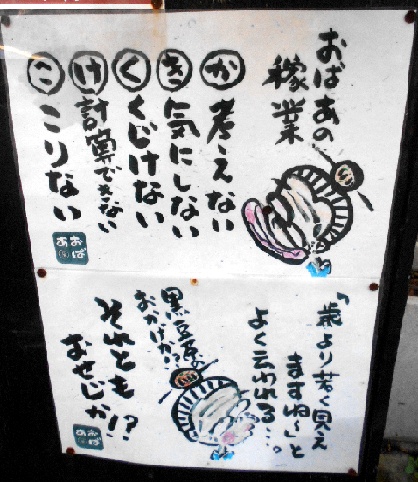 おばあの
稼業
か 考えない
き 気にしない
く くじけない
け 計算できない
こ こりない
おば
あ
「歳より若く見え
ますね〜」と
よく云われる…。
黒豆茶の
おかげか?
それとも!?
おせじか!
おば
あ